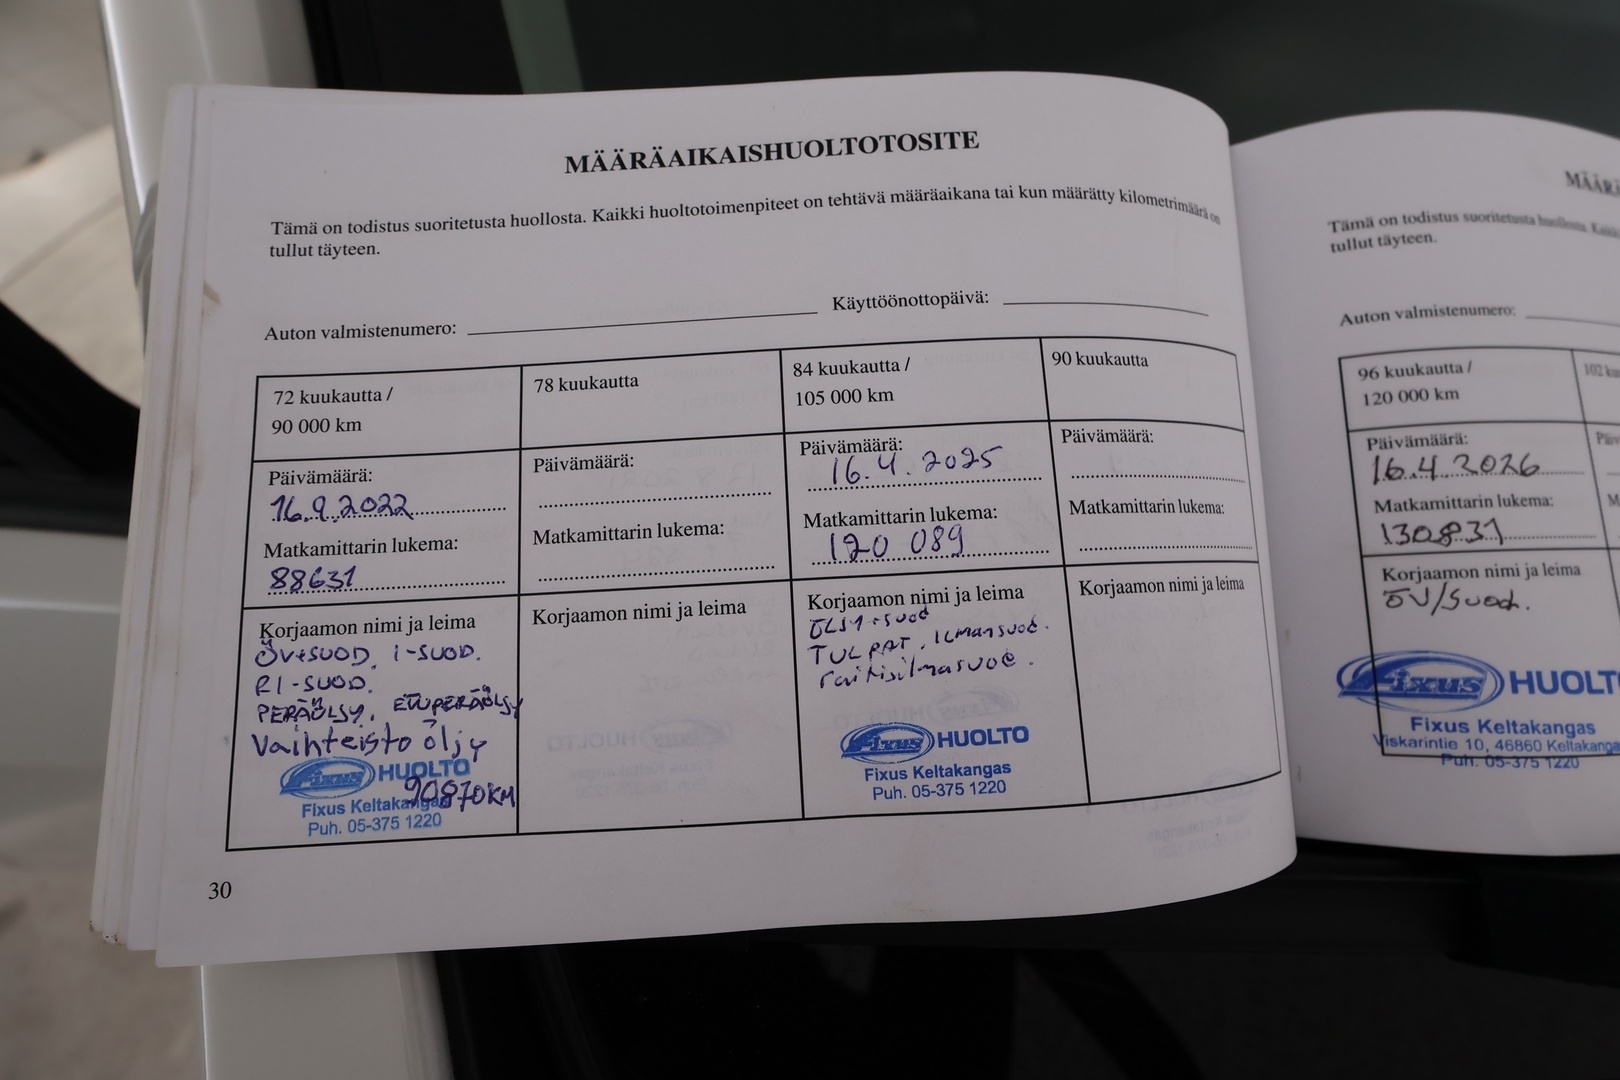 MÄÄRÄAIKAISHUOLTOTOSITE
Tämä on todistus suoritetusta huollosta. Kaikki huoltotoimenpiteet on tehtävä määräaikana tai kun määrätty kilometrimäärä on
tullut täyteen.
Auton valmistenumero:
Käyttöönottopäivä:
72 kuukautta /
90 000 km
Päivämäärä:
16.9.2022
Matkamittarin lukema:
88631
Korjaamon nimi ja leima
ÖV+SUOD. I-SUOD.
RI-SUOD.
PERÄÖLJY. ETUPERÄÖLJY
Vaihteisto öljy
Fixus HUOLTO
90870KM
Fixus Keltakangas
Puh. 05-375 1220
78 kuukautta
Päivämäärä:
Matkamittarin lukema:
Korjaamon nimi ja leima
84 kuukautta /
105 000 km
Päivämäärä:
16.4.2025
Matkamittarin lukema:
120 089
Korjaamon nimi ja leima
ÖLJY+suod
TULPAT. ILmansuod.
raitisilmasuod.
Fixus HUOLTO
Fixus Keltakangas
Puh. 05-375 1220
90 kuukautta
Päivämäärä:
Matkamittarin lukema:
Korjaamon nimi ja leima
30
Tämä on todistus suoritetusta huollosta.
tullut täyteen.
Auton valmistenumero:
96 kuukautta /
120 000 km
Päivämäärä:
16.4.2026
Matkamittarin lukema:
130831
Korjaamon nimi ja leima
ÖV/Suod.
Fixus HUOLTO
Fixus Keltakangas
Viskarintie 10, 46860 Keltakangas
Puh. 05-375 1220